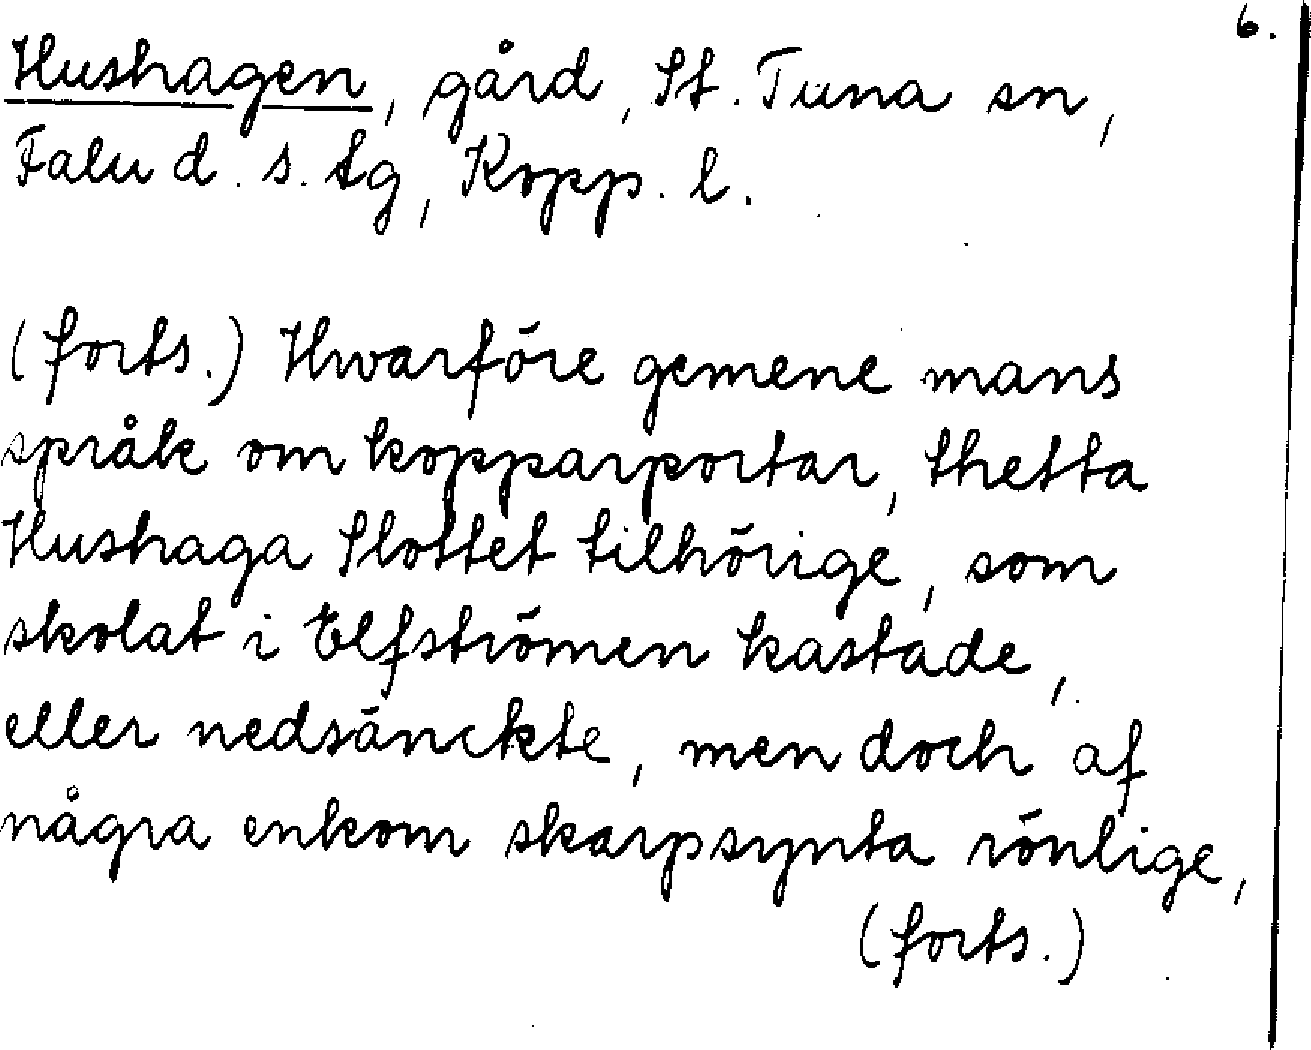 6.
Hushagen, gård, St. Tuna sn,
Falu d. s. tg, Kopp. l.
(forts.) Hwarföre gemene mans
språk om kopparportar, thetta
Hushaga Slottet tilhörige, som
skolat i Elfströmen kastade,
eller nedsänckte, men doch af
några enkom skarpsynta rönlige,
(forts.)